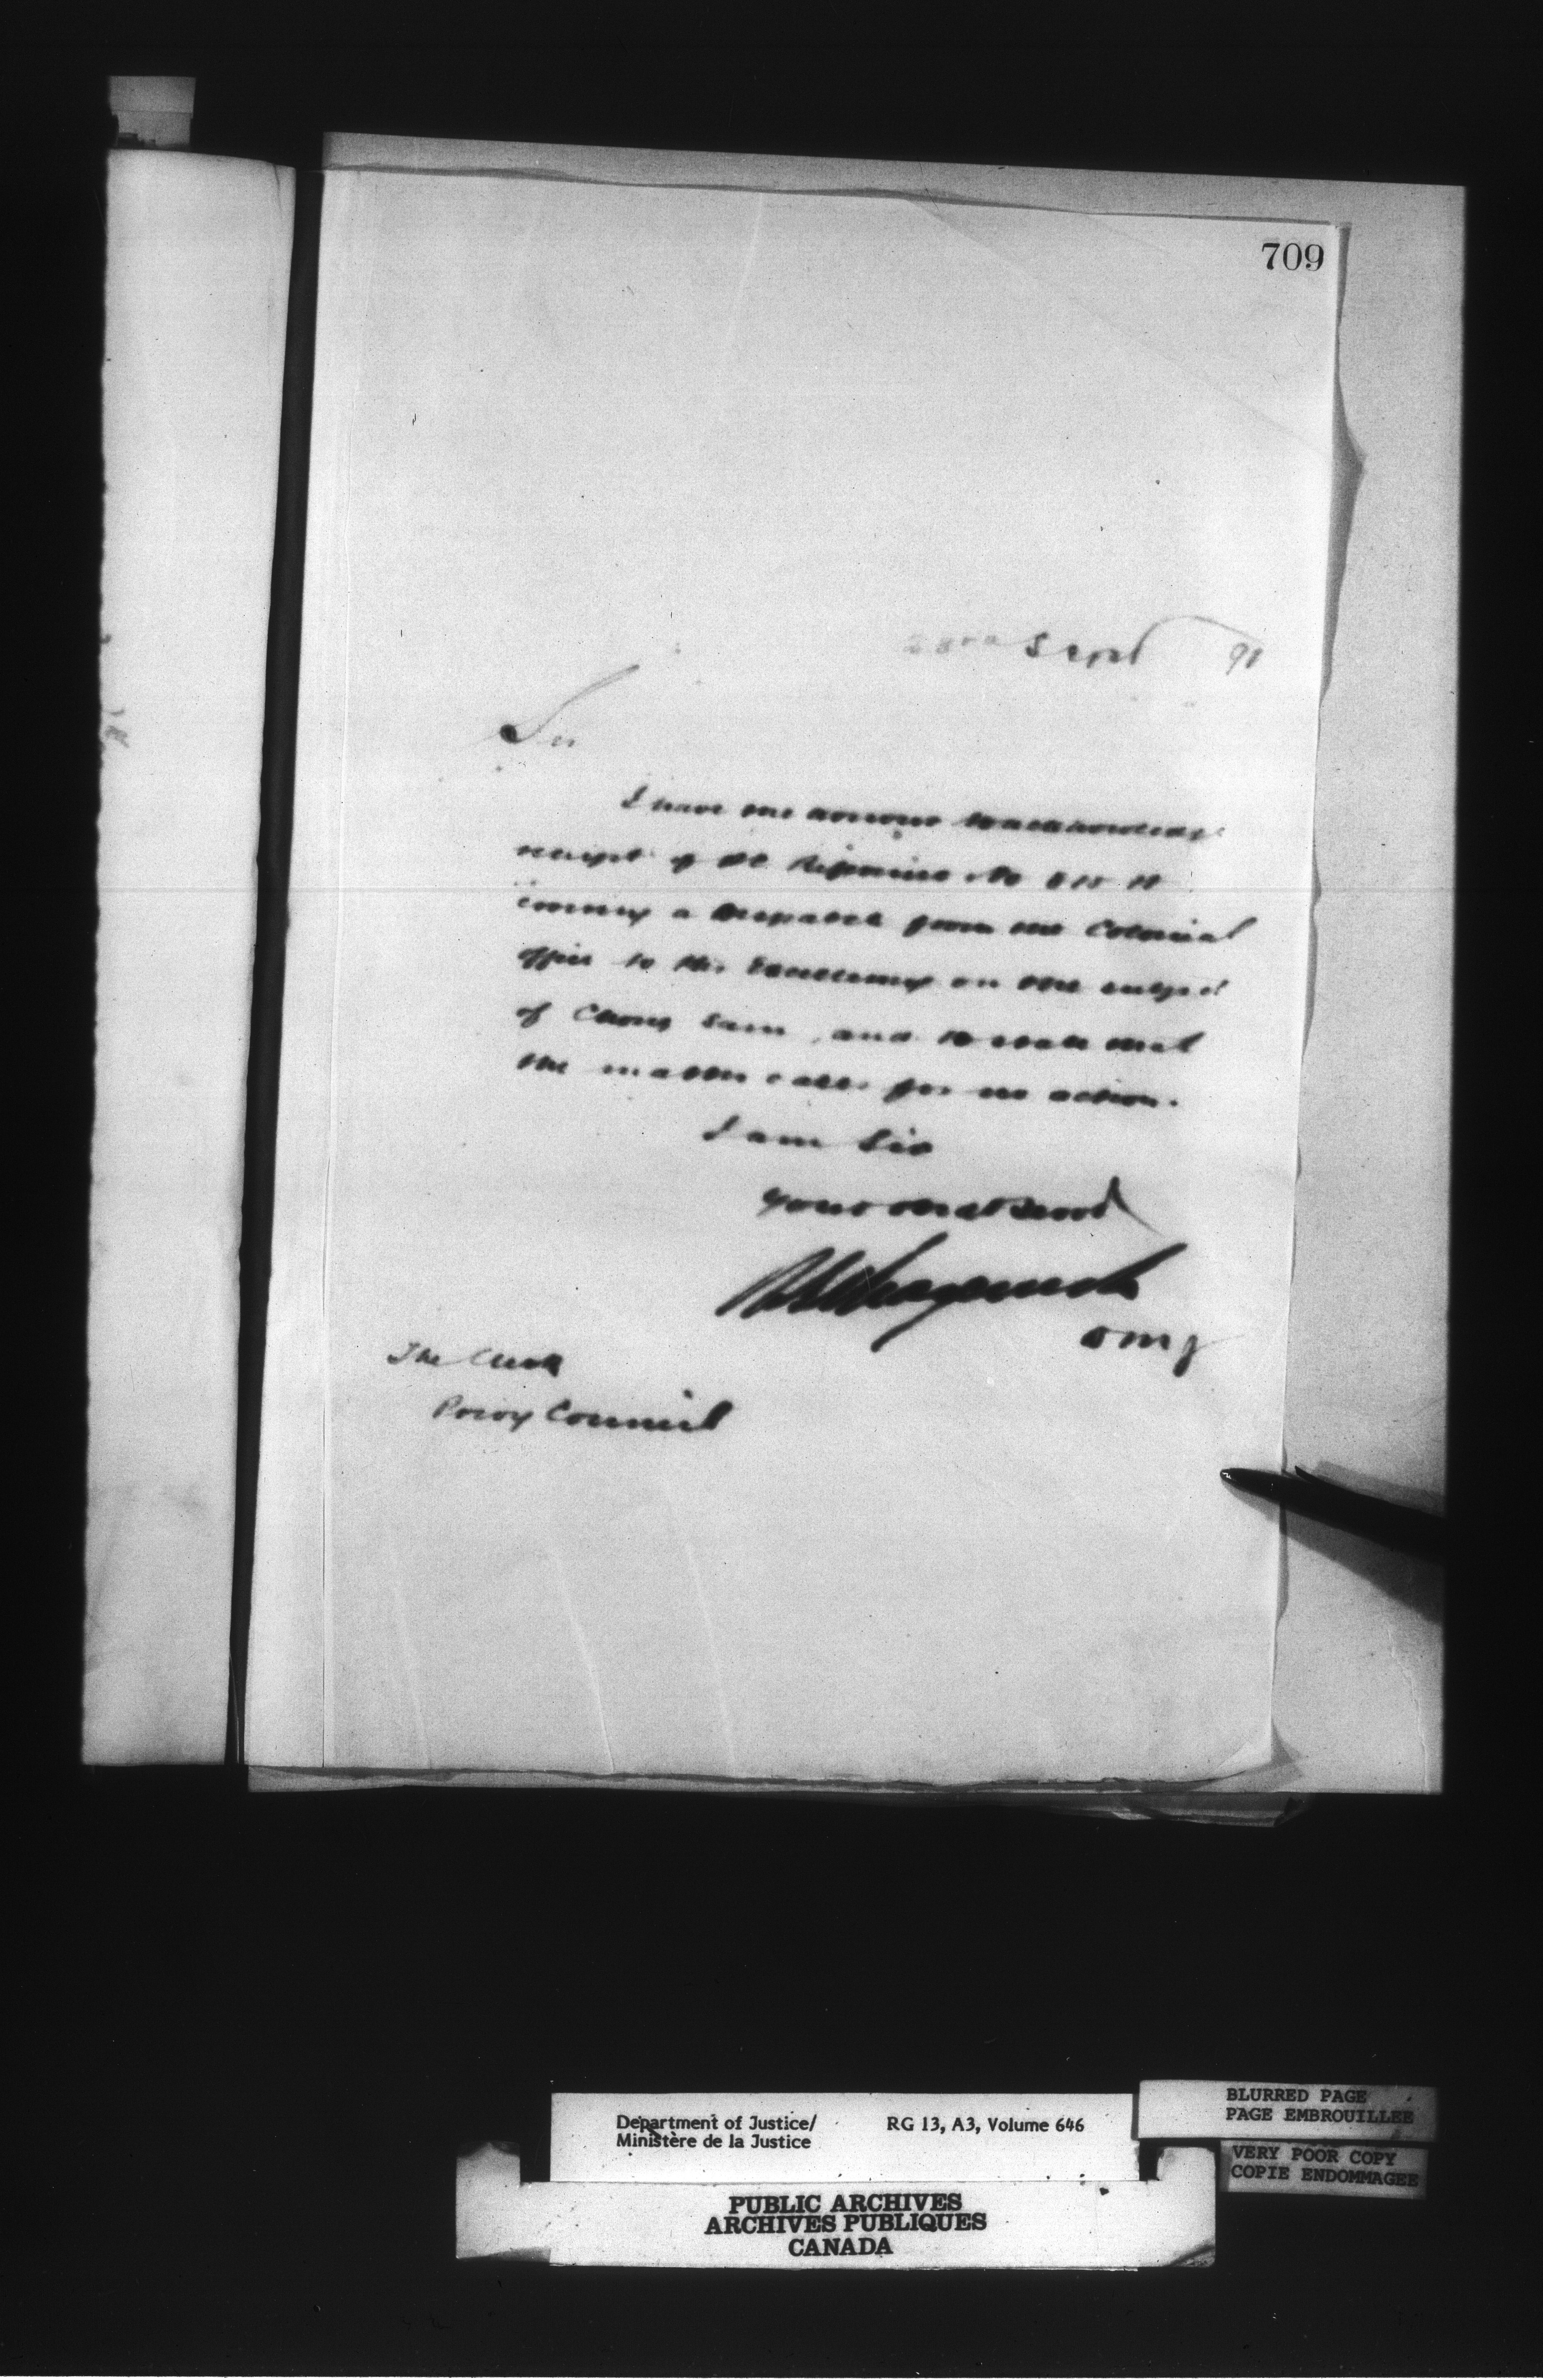 709
23rd Sept 91
Sir
I have the honour to acknowledge
receipt of the Reference No
covering a despatch from the Colonial
Office to His Excellency on the subject
of Chong Sam, and to state that
the matter calls for no action.
I am Sir
Your obedt Servt
The Clerk
Privy Council
Department of Justice/ RG 13, A3, Volume 646
Ministère de la Justice
BLURRED PAGE
PAGE EMBROUILLEE
VERY POOR COPY
COPIE ENDOMMAGEE
PUBLIC ARCHIVES
ARCHIVES PUBLIQUES
CANADA